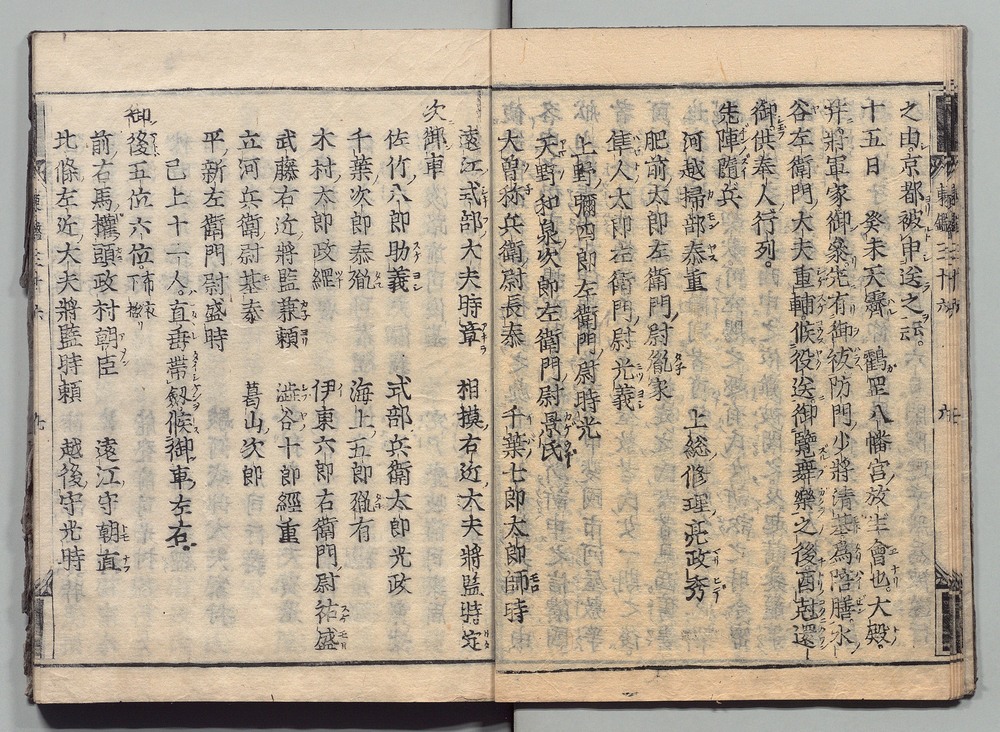 之由京都被申送之云云。
十五日　癸未天霽鶴岡八幡宮放生會也。大殿。
并將軍家御參先有御祓防門少將清基為陪膳水
谷左衛門大夫重輔候役送御覽舞樂之後酉尅還
御供奉人行列。
先陣隨兵
河越掃部泰重　上総修理亮政秀
肥前太郎左衛門尉胤家
隼人太郎右衛門尉光義
上野彌四郎左衛門尉時光
天野和泉次郎左衛門尉景氏
大曽祢兵衛尉長泰　千葉七郎太郎師時
遠江式部大夫時章　相摸右近大夫將監時定
次御車
佐竹八郎助義　式部兵衛太郎光政
千葉次郎泰胤　海上五郎胤有
木村太郎政綱　伊東六郎右衛門尉祐盛
武藤右近將監兼頼　澁谷十郎經重
立河兵衛尉基泰　葛山次郎
平新左衛門尉盛時
已上十一人直垂帯劔候御車左右。
御後五位六位布衣下橑
前右馬權頭政村朝臣　遠江守朝直
北條左近大夫將監時頼　越後守光時
東鑑三十六　九